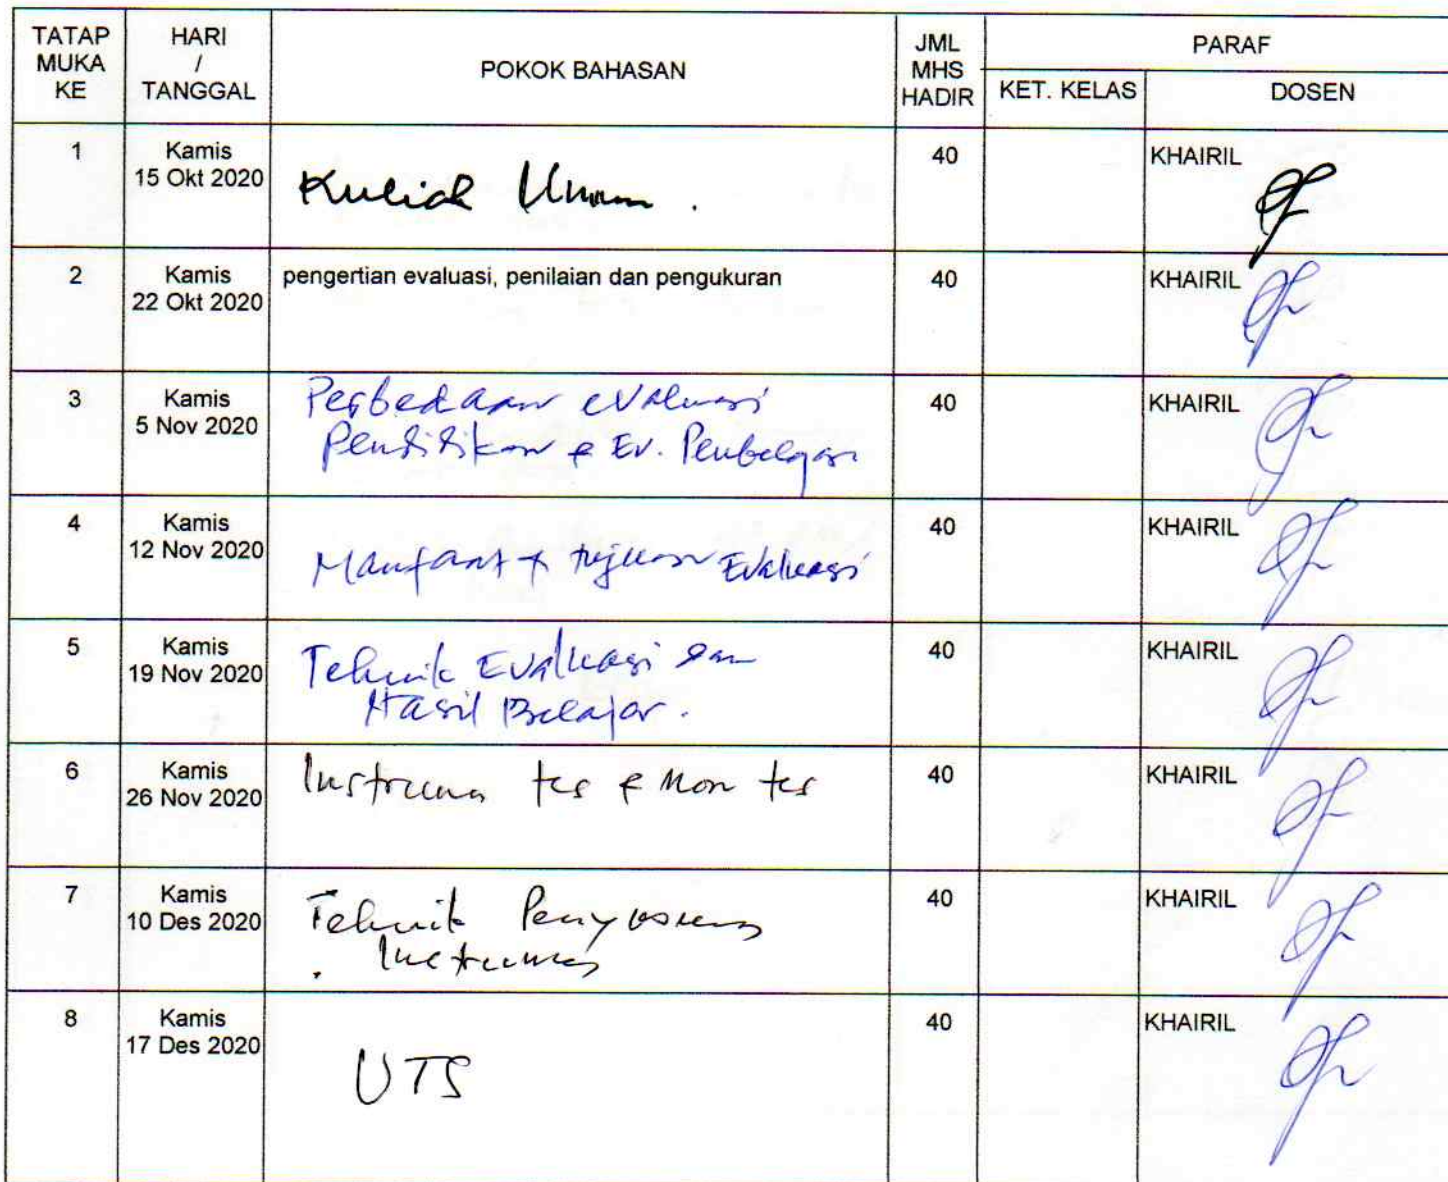 TATAP MUKA KE
HARI / TANGGAL
POKOK BAHASAN
JML MHS HADIR
PARAF
KET. KELAS
DOSEN
1
Kamis
15 Okt 2020
Kuliah Umum .
40
KHAIRIL
2
Kamis
22 Okt 2020
pengertian evaluasi, penilaian dan pengukuran
40
KHAIRIL
3
Kamis
5 Nov 2020
Perbedaan evaluasi
Pendidikan & Ev. Pembelajaran
40
KHAIRIL
4
Kamis
12 Nov 2020
Manfaat & tujuan Evaluasi
40
KHAIRIL
5
Kamis
19 Nov 2020
Tehnik Evaluasi dan
Hasil Belajar .
40
KHAIRIL
6
Kamis
26 Nov 2020
Instrumen tes & Non tes
40
KHAIRIL
7
Kamis
10 Des 2020
Tehnik Penyusunan
Instrumen
40
KHAIRIL
8
Kamis
17 Des 2020
UTS
40
KHAIRIL